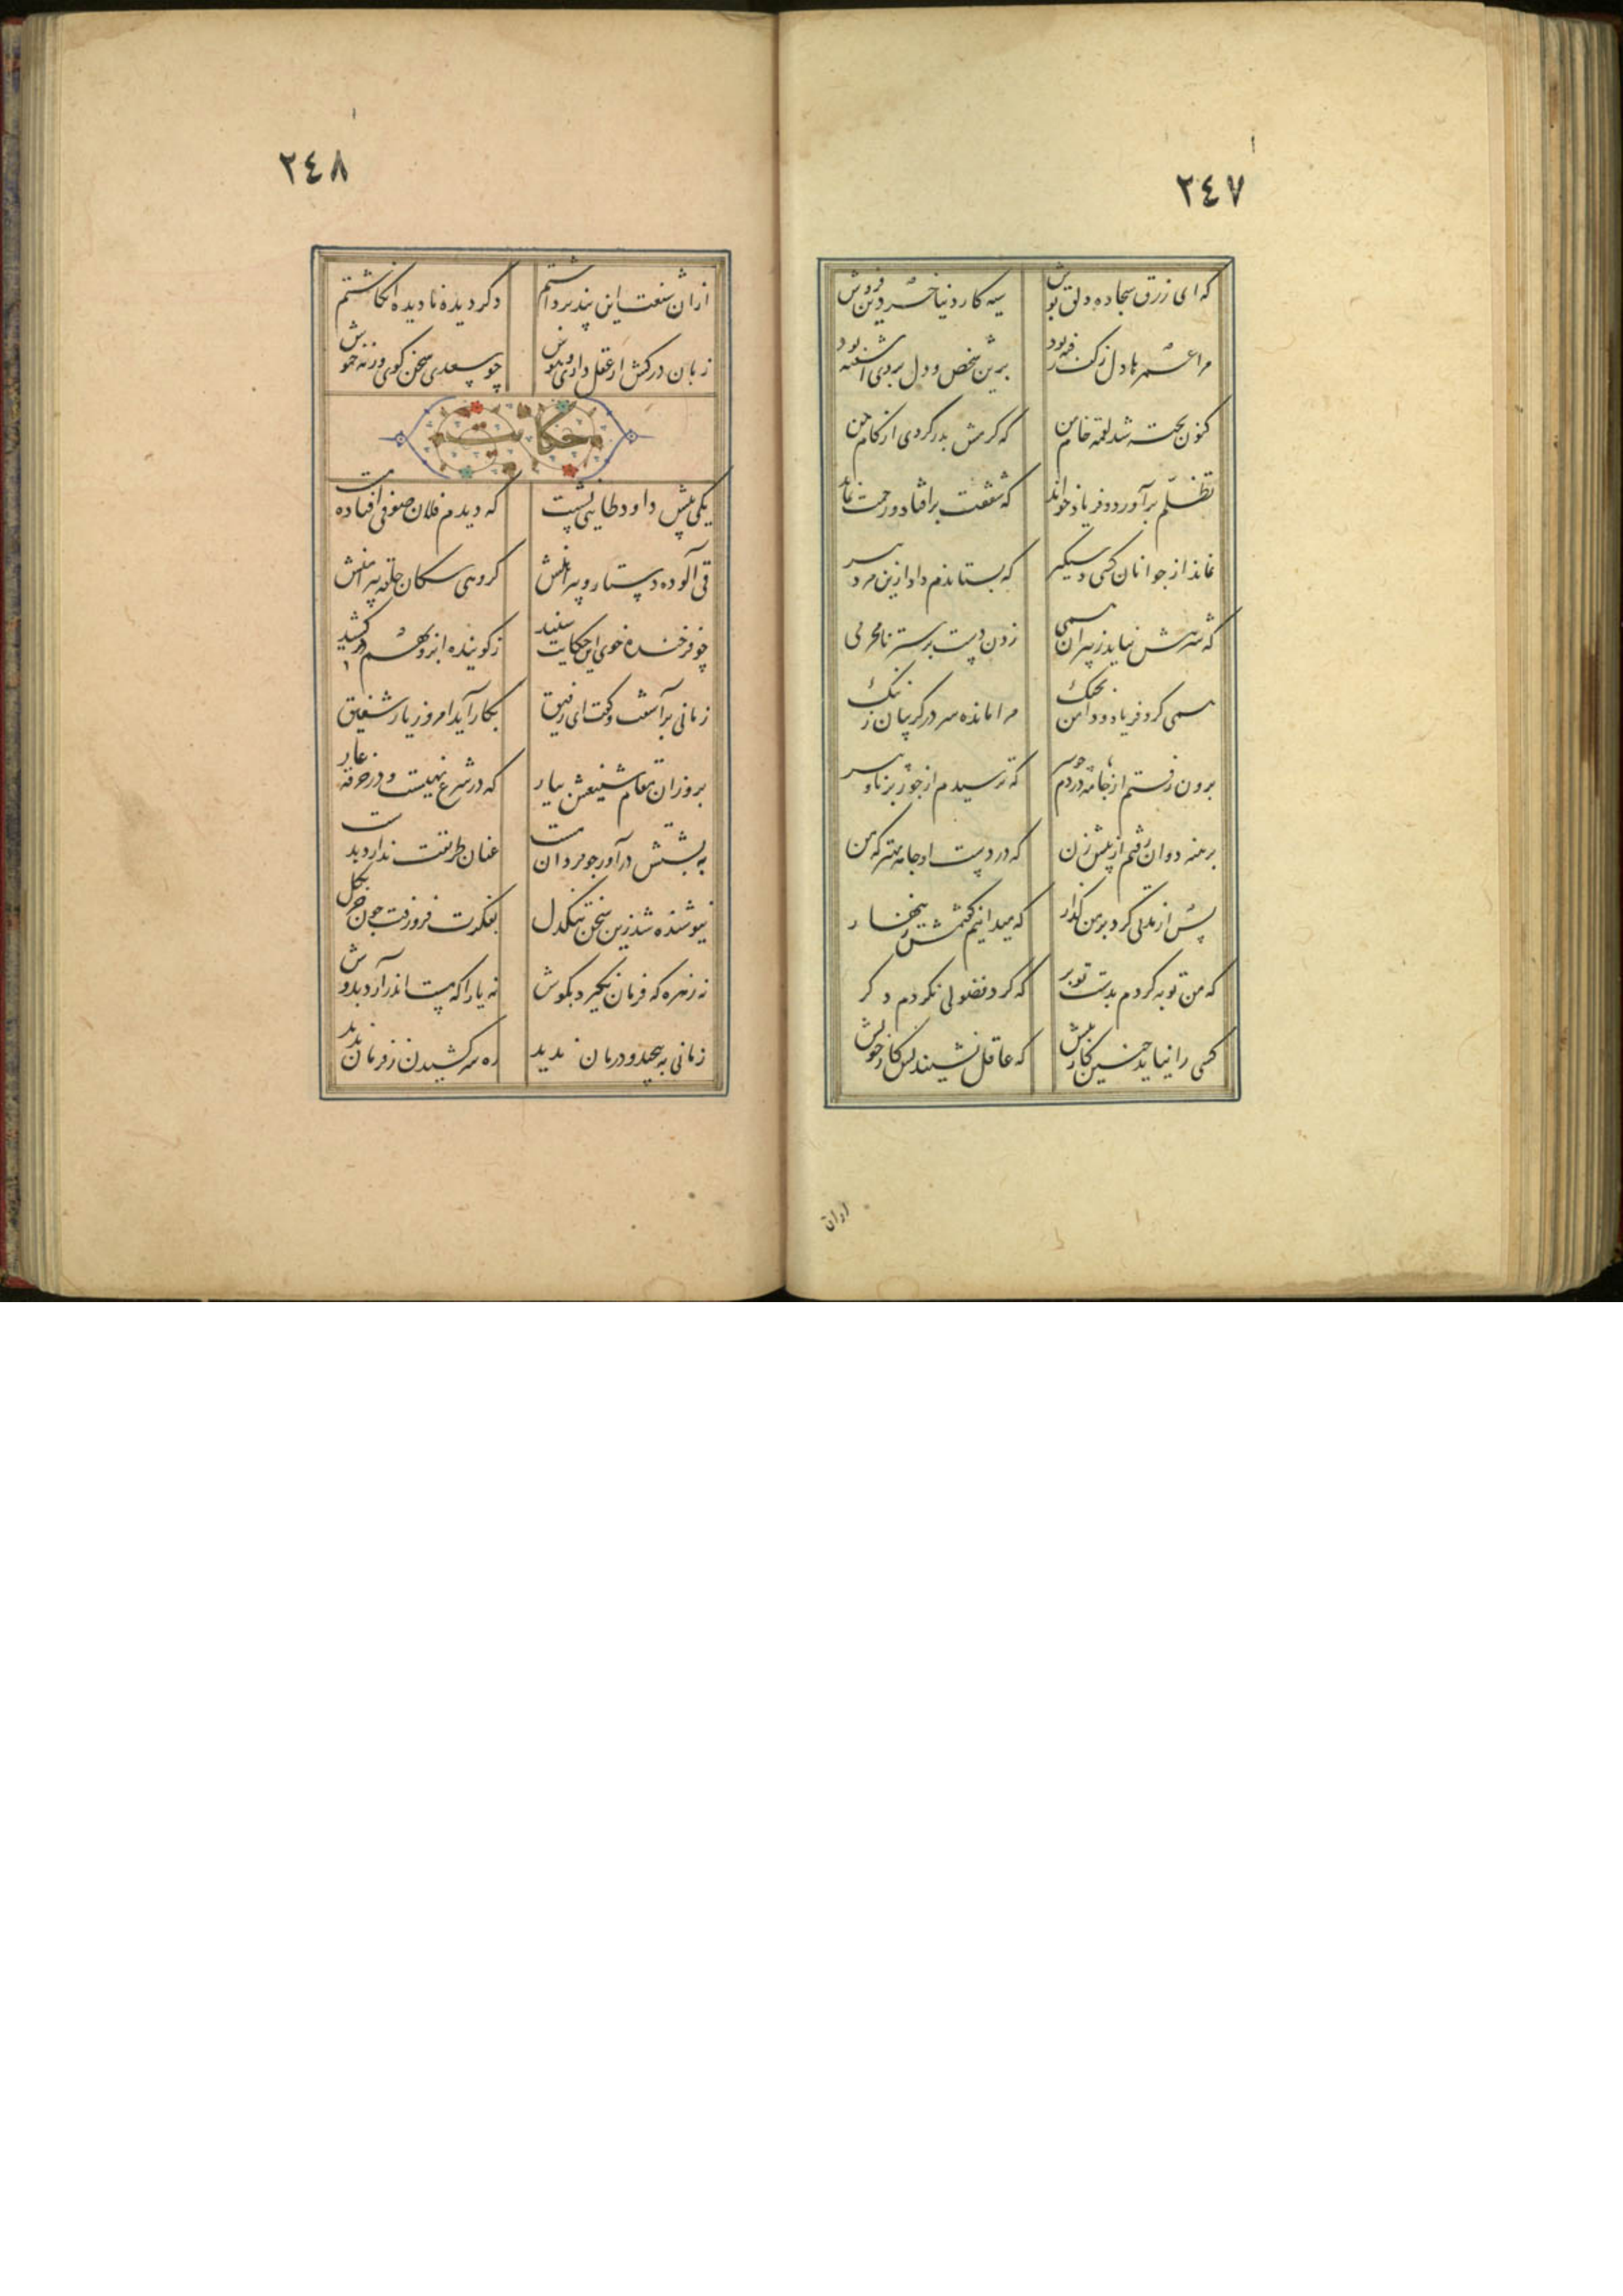 ٢٤٧
که ای زرق سجاده دلق پوش سیه کار دنیا خر دین فروش
مرا عمرها دل ز کف رفته بود برین شخص و دل بروی آشفته بود
کنون پخته شد لقمه خام من که گرمش بدر کردی از کام من
تظلّم برآورد و فریاد خواند که شفقت برافتاد و رحمت نماند
نماند از جوانان کسی دستگیر که بستاندم داد ازین مرد پیر
که شرمش نیاید ز پیران همی زدن دست بر ستر نامحرمی
همی کرد فریاد و دامن بچنگ مرا مانده سر در گریبان ز ننگ
برون رفتم از جامه در دم چو سیر که ترسیدم از جور برنا و پیر
برهنه دوان رفتم از پیش زن که در دست او جامه بهتر که من
پس از مدتی کرد بر من گذار که میدانیم گفتمش زینهار
که من توبه کردم بدست تو بر که گرد فضولی نگردم دگر
کسی را نیاید چنین کار پیش که عاقل نشیند پس کار خویش
ازان
٢٤٨
ازان شنعت این پند برداشتم دگر دیده نادیده انگاشتم
زبان درکش ار عقل داری و هوش چو سعدی سخن گوی ورنه خموش
حکایت
یکی پیش داود طایی نشست که دیدم فلان صوفی افتاده مست
قی آلوده دستار و پیراهنش گروهی سگان حلقه پیرامنش
چو فرخنده خوی این حکایت شنید ز گوینده ابرو بهم درکشید
زمانی برآشفت و گفت ای رفیق بکار آید امروز یار شفیق
برو زان مقام شنیعش بیار که در شرع نهیست و در خرقه عار
به پشتش درآور چو مردان مست عنان طریقت ندارد بدست
نیوشنده شد زین سخن تنگدل بفکرت فرو رفت چون خر بگل
نه زهره که فرمان نگیرد بگوش نه یارا که مست اندر آرد بدوش
زمانی به پیچید و درمان ندید ره سر کشیدن ز فرمان ندید